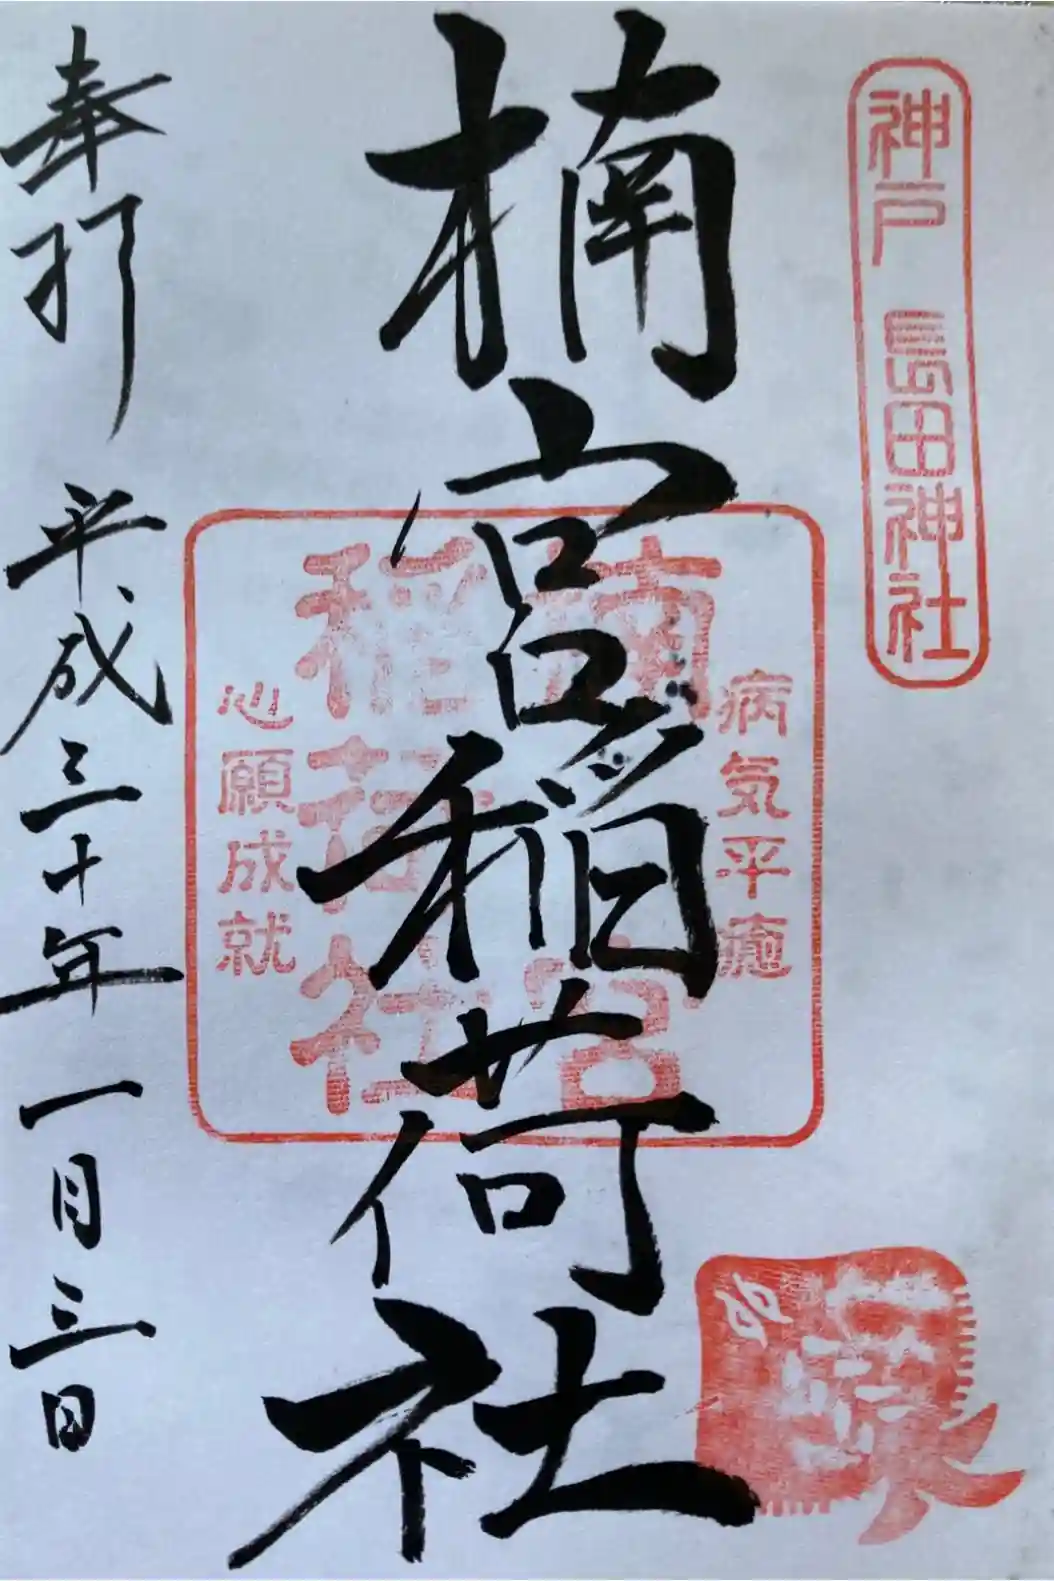 神戸 長田神社
楠宮稲荷社
病気平癒
楠宮
稲荷社
心願成就
奉拝 平成三十年 一月三日